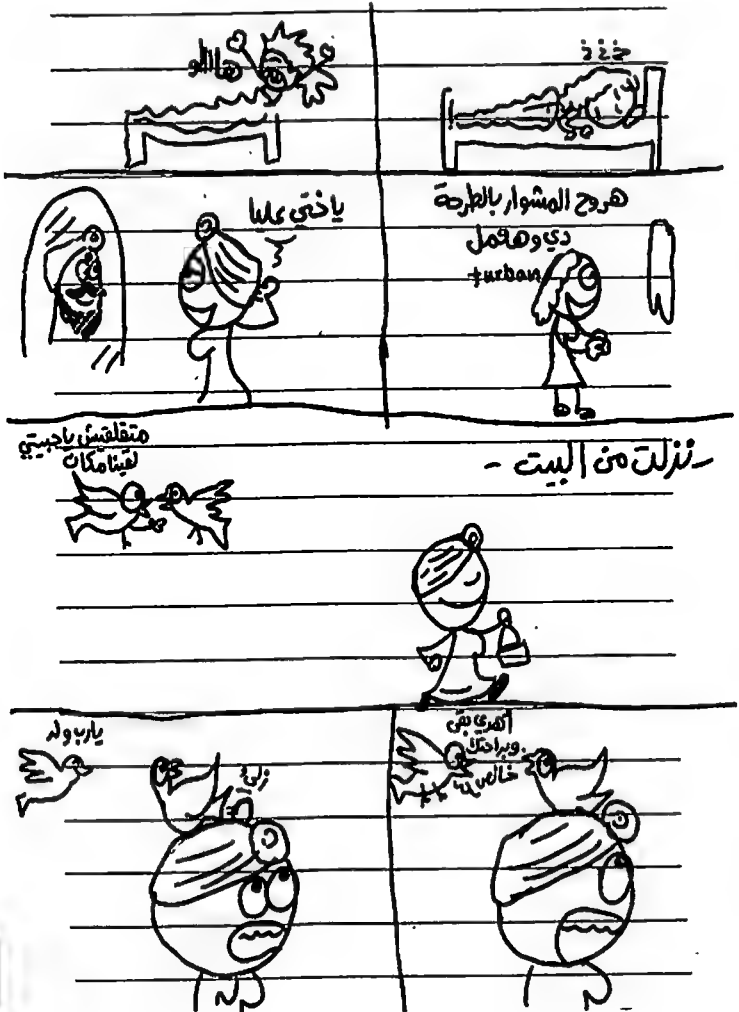 خ‍ ز ز
هاااالو
هروح المشوار بالطرحة
دي وهعمل
turban
ياختي عليا
- نزلت من البيت -
متقلقيش ياحبيبتي
لقينا مكان
اهدي بقى
وبراحتك
خالص
يارب ولد